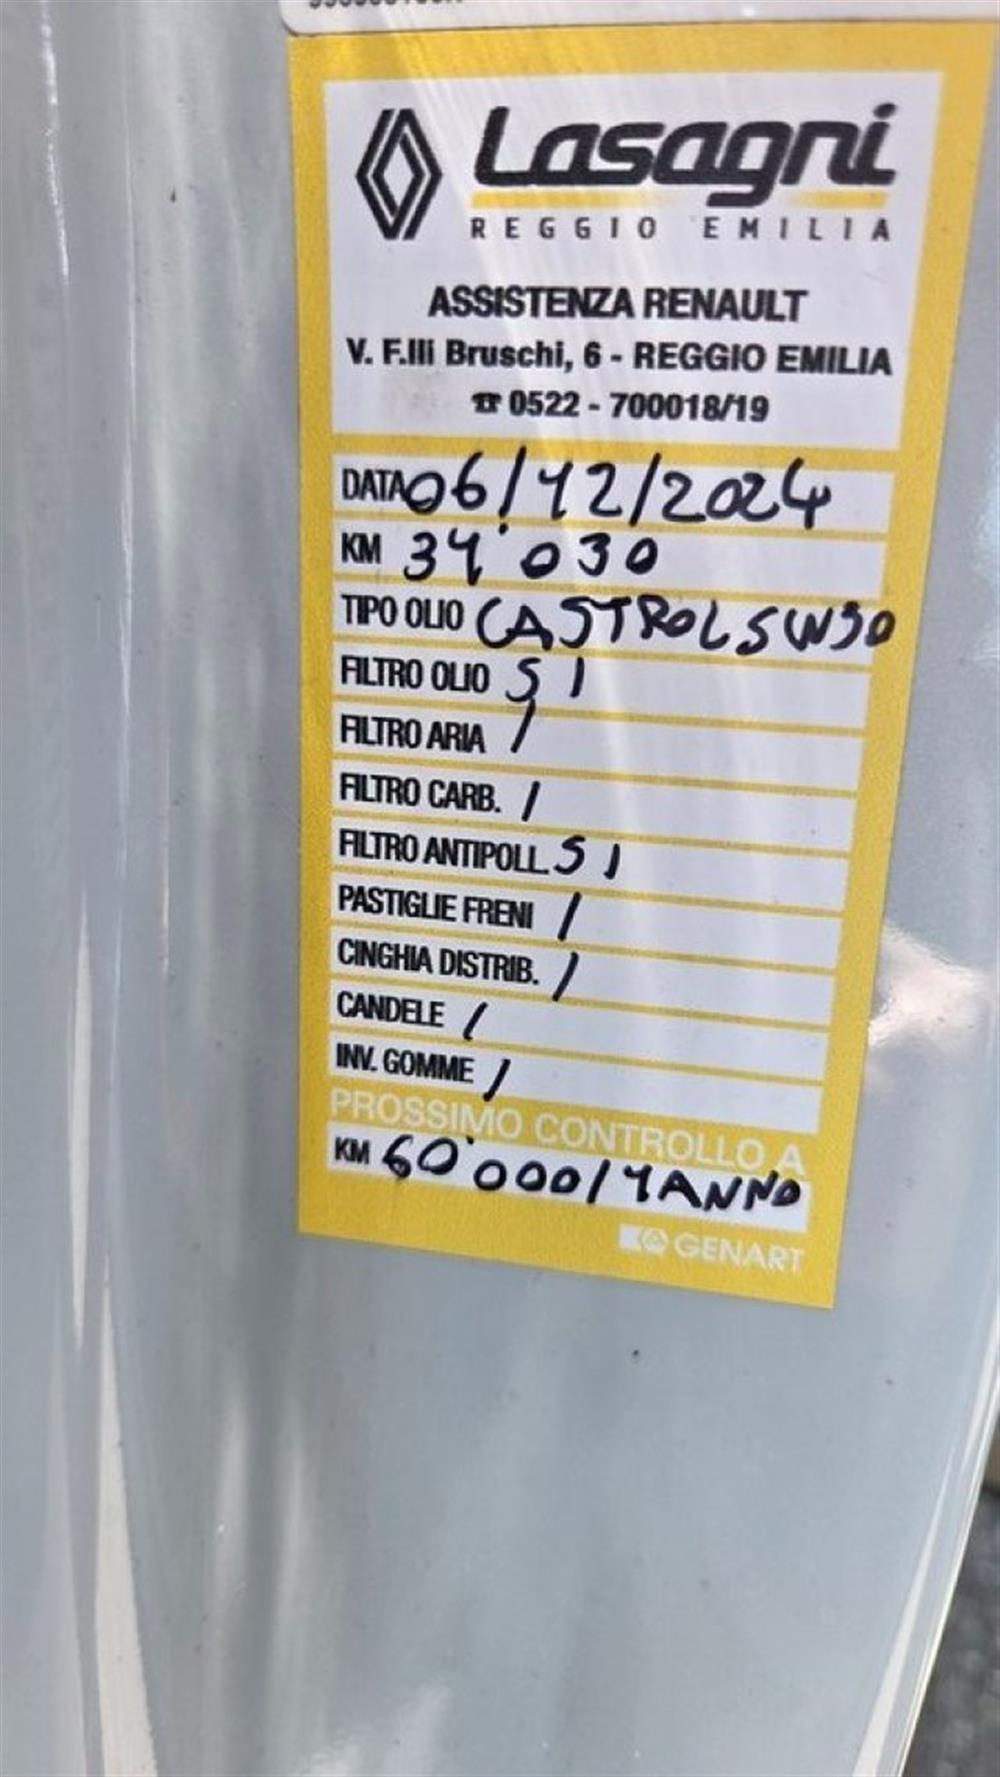 Lasagni
REGGIO EMILIA
ASSISTENZA RENAULT
V. F.lli Bruschi, 6 - REGGIO EMILIA
☎ 0522 - 700018/19
DATA 06/12/2024
KM 34'030
TIPO OLIO CASTROL 5W30
FILTRO OLIO SI
FILTRO ARIA /
FILTRO CARB. /
FILTRO ANTIPOLL. SI
PASTIGLIE FRENI /
CINGHIA DISTRIB. /
CANDELE /
INV. GOMME /
PROSSIMO CONTROLLO A
KM 60'000/1 ANNO
GENART